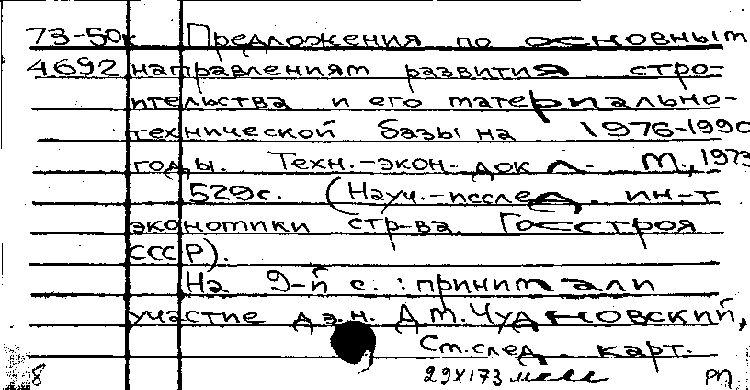 73-50к Предложения по основным
4692 направлениям развития стро-
ительства и его материально-
технической базы на 1976-1990
годы. Техн.-экон. докл. - М., 1973
529с. (Науч.-исслед. ин-т
экономики стр-ва Госстроя
СССР).
На 9-й с.: принимали
участие д.э.н. Д.М. Чудновский,
См.след. карт.
8 29X173